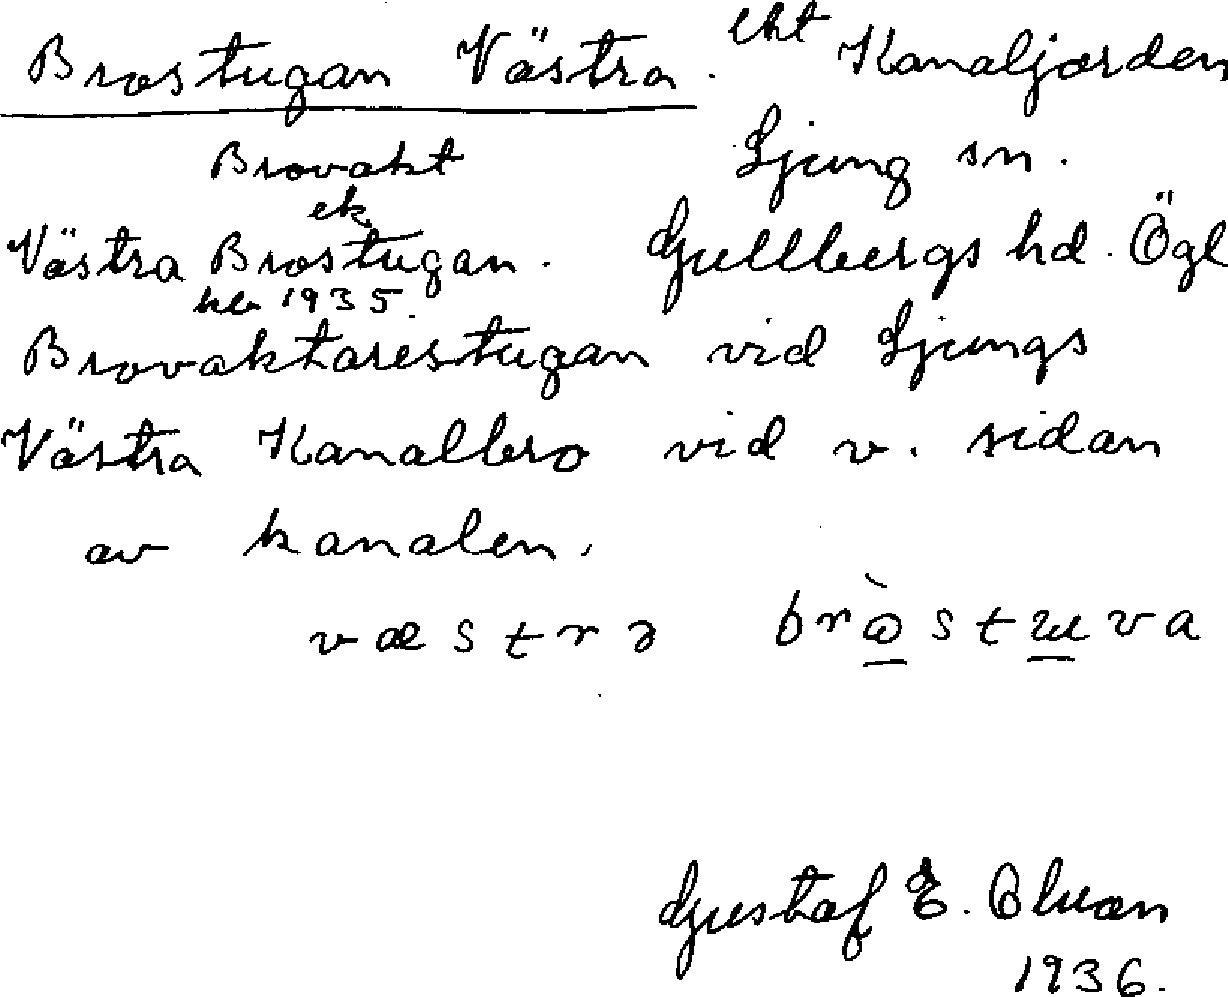 Brostugan Västra. Kanaljorden
Brovakt Ljung sn.
ek
Västra Brostugan. Gullbergs hd. Ögl
1935.
Brovaktarestugan vid Ljungs
Västra Kanalbro vid v. sidan
av kanalen.
væstrə
Gustaf E.
1936.